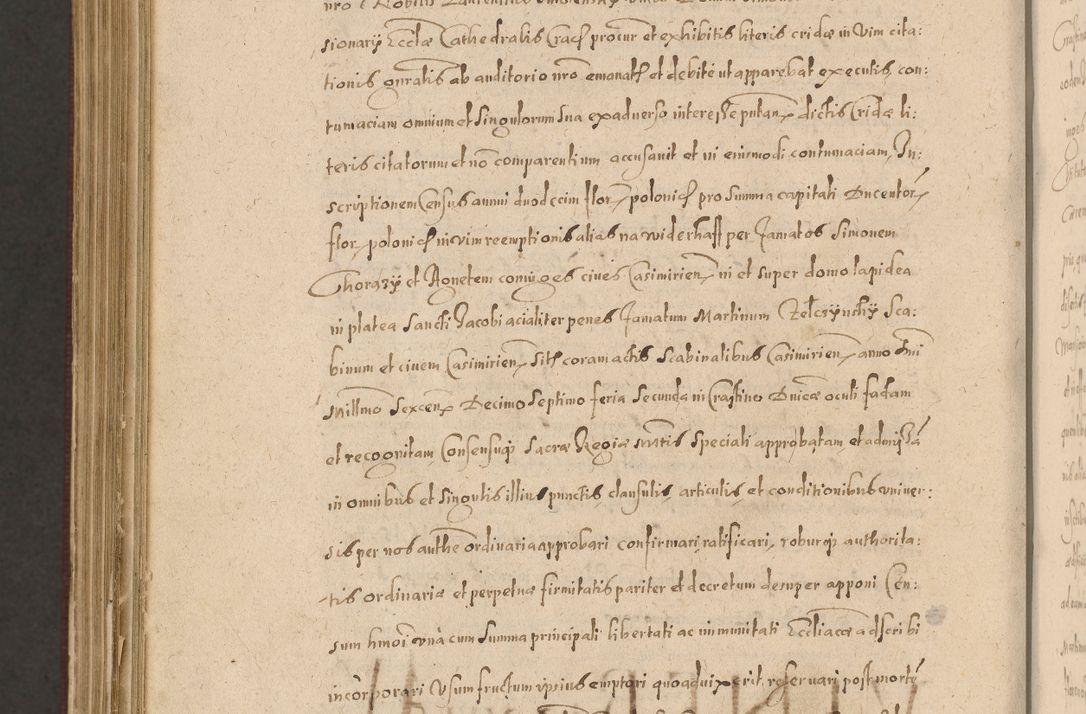 sionarÿ Eccl̃æ Cathedralis Crac̃ procur et exhibitis literis cridæ in Vim cita:
tionis gn̄ralis ab auditorio nr̃o emanat̃ et debite ut apparebat executis, con:
tumaciam omnium et Singulorum Sua exaduerso interesse putan̄ dictis Cridæ li:
teris citatorum et nō comparentium accusauit et in eiusmodi contumaciam, In:
scriptionem Census annui duodecim flor̄ polonic̃ pro Summa capitali Ducentor̄
flor, polonic̃ in vim reemptionis alias na widerkaff per famatos Simonem
Chorazÿ et Agnetem coniuges ciues Casimirien̄ in et super domo lapidea
in platea Sancti Jacobi acialiter penes famatum Martinum Zelczynskÿ Sca:
binum et ciuem Casimirien̄ Sit̃ coram actis Scabinalibus Casimirien̄ anno Dn̄i
Millmo Sexcen̄ Decimo Septimo feria Secunda in Crastino Dn̄icæ oculi factam
et recognitam, Consensuq̃ Sacræ Regiæ Mt̃tis speciali approbatam, et admissā
in omnibus et Singulis illius punctis, clausulis, articulis, et conditionibus vniuer:
sis per nos authē ordinaria approbari confirmari, ratificari, roburq̃ authorita:
tis ordinariæ et perpetuæ firmitatis pariter et decretum desuper apponi Cen:
sum hm̄oi vna cum Summa principali libertati ac immunitati Eccl̄iacæ adscribi
incorporari Vsumfructum ipsius emptori quoad vixerit, reseruari post mortē